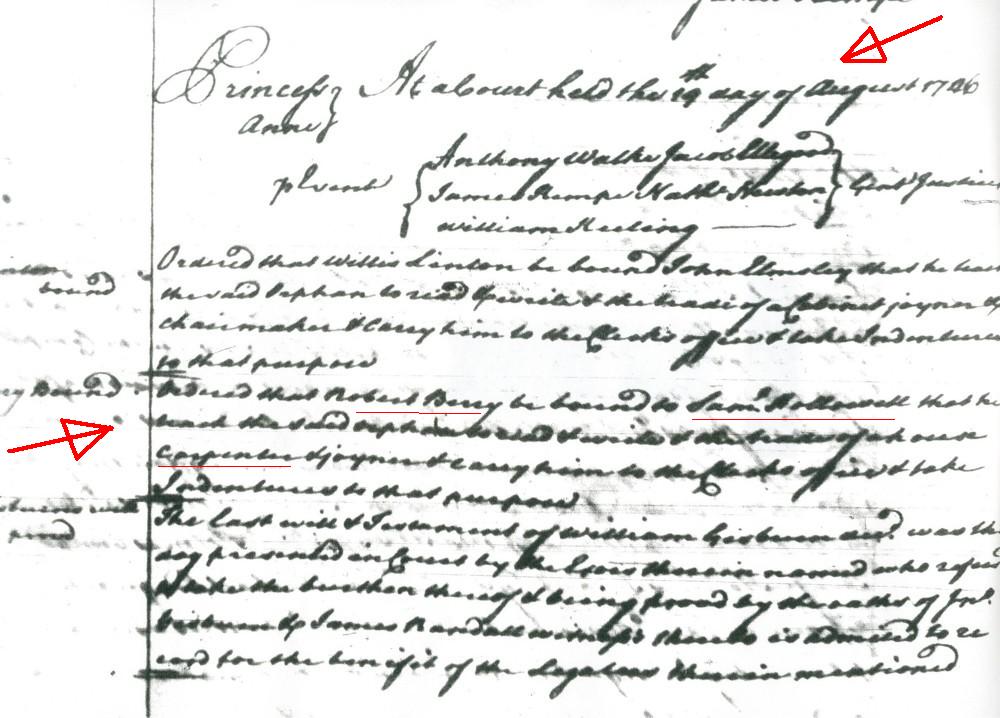 Princess At a Court held the 19th day of August 1746
Anne
present
Anthony Walke Jacob Ellegood
James Kempe Nathl Newton Gent Justices
William Keeling
Ordered that Willis Linton be bound John Elmsley that he teach
bound
the said Orphan to read & write & the trade of a Cabinet joyner &
chairmaker & Carry him to the Clerks office & take Indentures
to that purpose
Bound
Ordered that Robert Berry be bound to Saml Hollowell that he
teach the said orphan to read & write & the trade of a house
Carpenter & joyner & carry him to the Clerks office & take
Indentures to that purpose
The last will & Testament of William Gisburn decd. was this
day presented in Court by the Exors therein named who refused
to take the burthen thereof & being proved by the oaths of Jno.
& James Randall witness's thereto is admitted to re
cord for the benefit of the Legatees therein mentioned